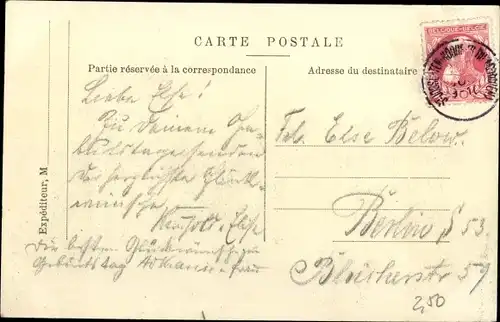 CARTE POSTALE
Partie réservée à la correspondance
Adresse du destinataire
BELGIQUE-BELGIE
Expéditeur, M
Liebe Else!
Zu Deinem Ge-
burtstage senden
Dir herzlichste Glück-
wünsche
Else
Die besten Glückwünsche zum
Geburtstag
Frl. Else Below.
Berlin S 53.
Blücherstr 59
2,50